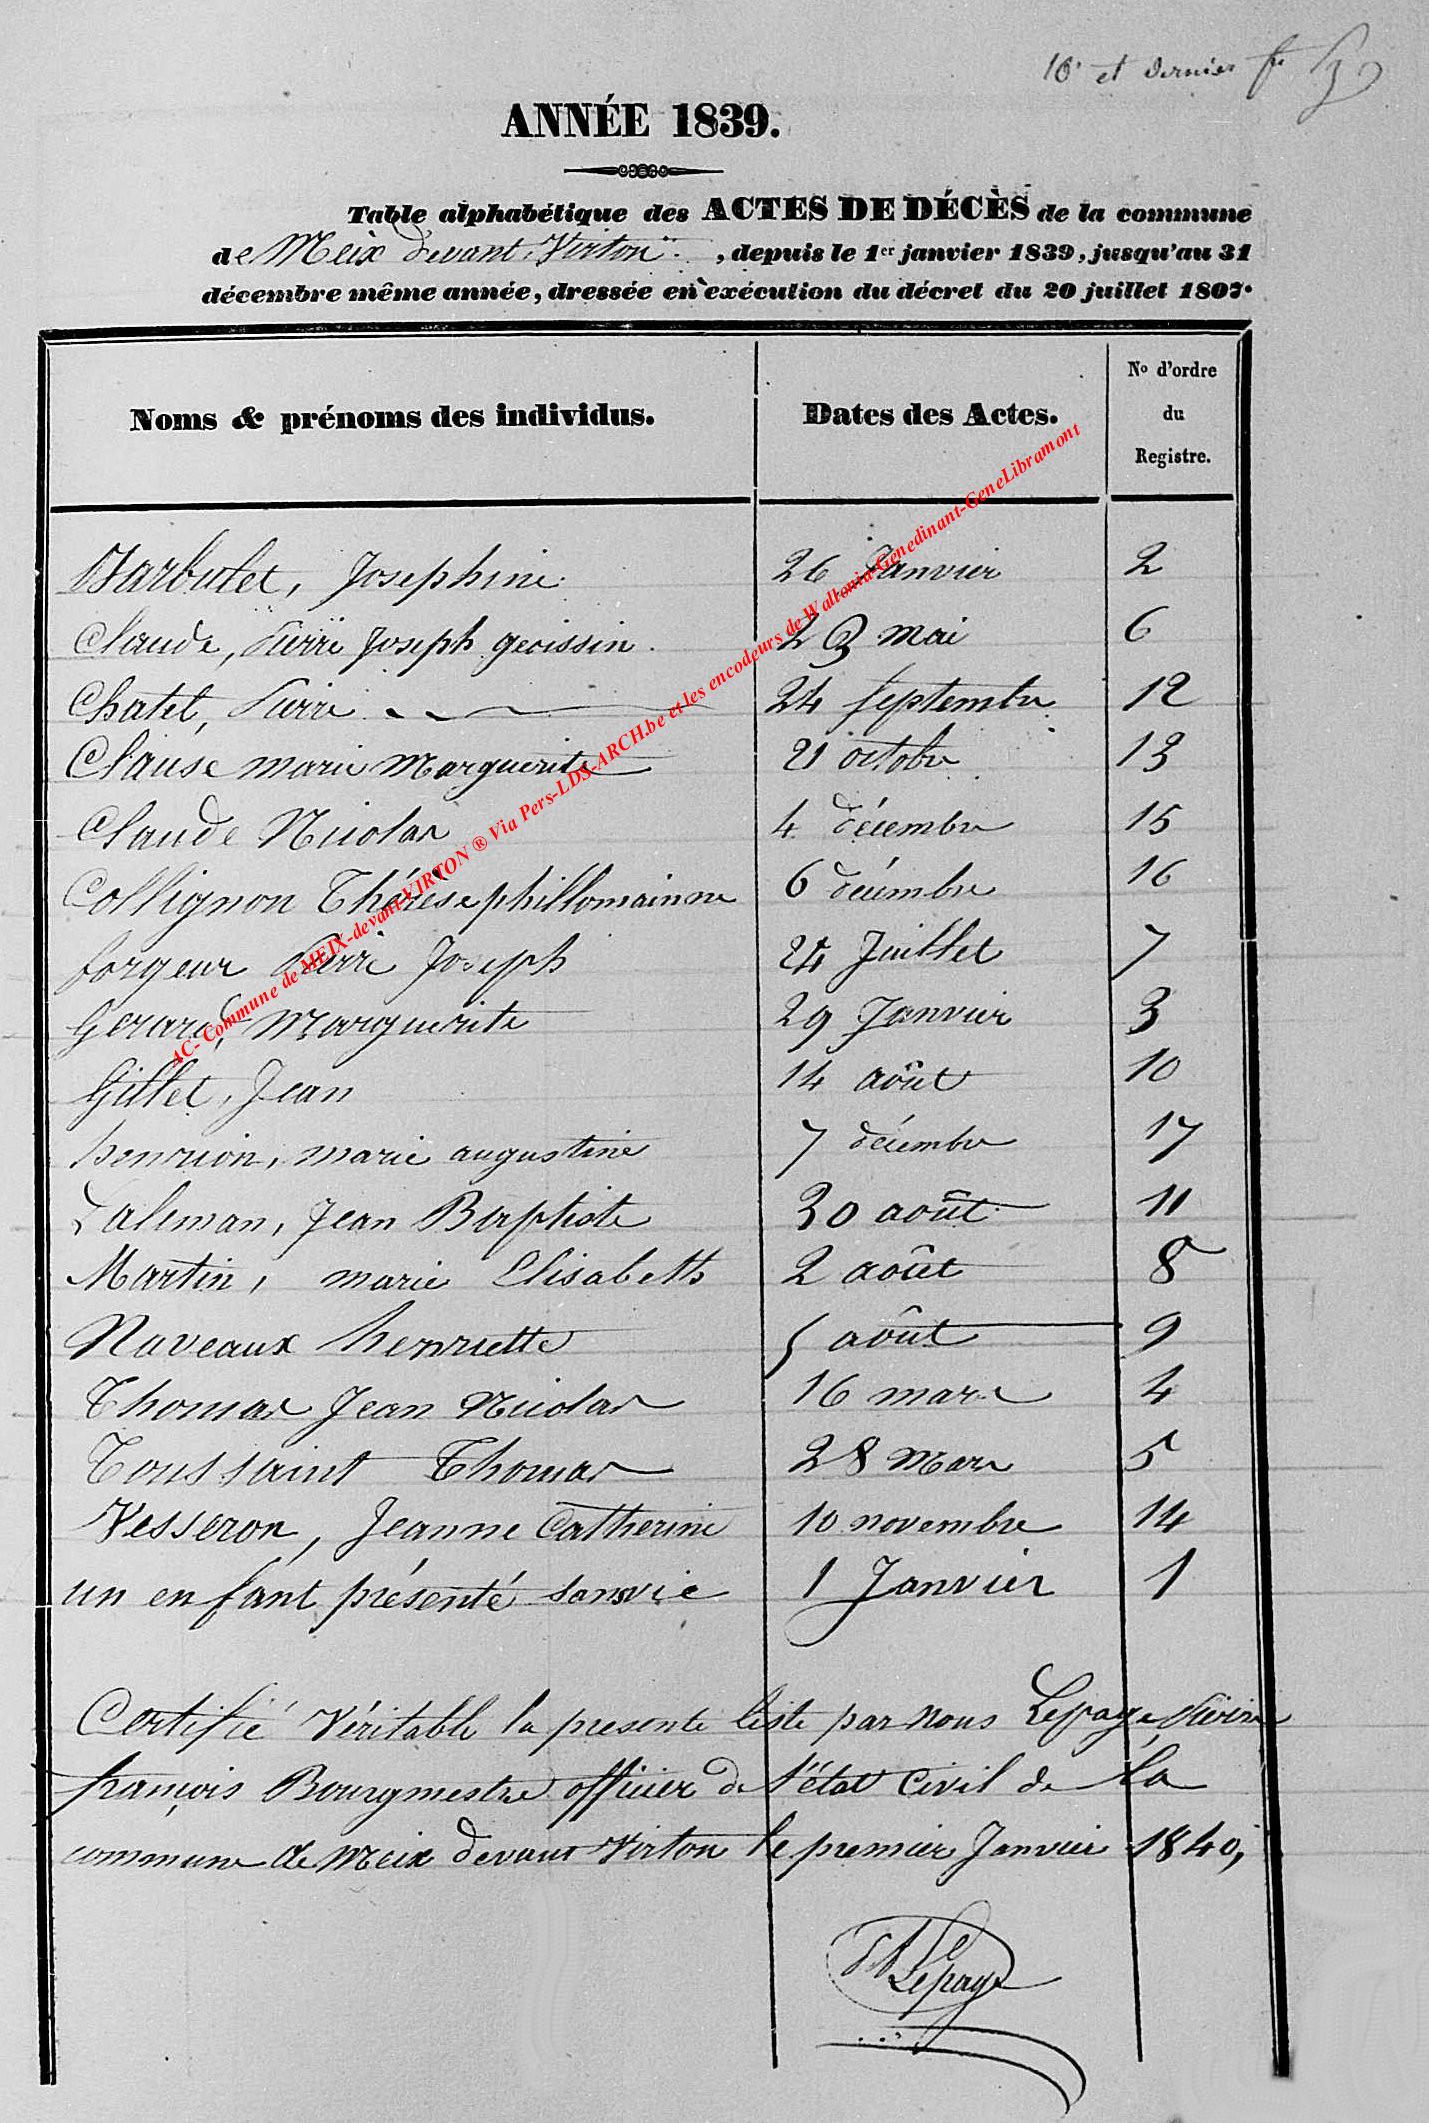 10e et dernier fe
ANNÉE 1839.
Table alphabétique des ACTES DE DÉCÈS de la commune
de Meix devant Virton, depuis le 1er janvier 1839, jusqu'au 31
décembre même année, dressée en exécution du décret du 20 juillet 1807.
Noms & prénoms des individus. Dates des Actes. No d'ordre du Registre.
Barbulet, Josephine 26 Janvier 2
Claude, Pierre Joseph geoissin 23 mai 6
Chatel, Pierre 24 septembre 12
Clause marie Marguerite 21 octobre 13
Claude Nicolas 4 décembre 15
Collignon Thérèse phillomainne 6 décembre 16
forgeur Pierre Joseph 24 Juillet 7
Gerard, Marguerite 29 Janvier 3
Gillet, Jean 14 août 10
henrion, marie augustine 7 décembre 17
Laleman, Jean Baptiste 30 août 11
Martin, marie Elisabeth 2 août 8
Naveaux henriette 5 août 9
Thomas Jean Nicolas 16 mars 4
Toussaint Thomas 28 Mars 5
Vesseron, Jeanne Catherine 10 novembre 14
un enfant présenté sans vie 1 Janvier 1
Certifié Véritable la presente liste par nous Lepage, Pierre
françois Bourgmestre officier de l'état Civil de la
commune de Meix devant Virton le premier Janvier 1840,
Lepage
AC- Commune de MEIX-devant-VIRTON ® Via Pers-LDS-ARCH.be et les encodeurs de Wallonia-Genedinant-GeneLibramont